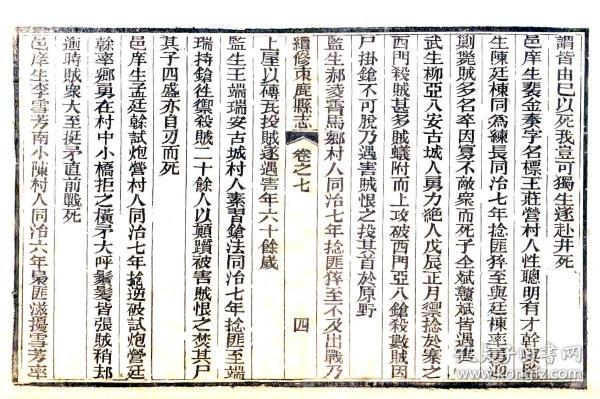 謂皆由巳以死我豈可獨生遂赴井死
邑庠生裴金泰字名標王莊營村人性聰明有才幹與
生陳廷棟同為練長同治七年捻匪猝至與廷棟率勇迎
剿斃賊多名卒因寡不敵衆而死子全斌贊斌皆遇害
武生柳亞八安古城人勇力絕人戊辰正月禦捻於寨之
西門殺賊甚多賊蟻附而上攻破西門亞八鎗殺數賊因
尸掛鎗不可脫乃遇害賊恨之投其首於原野
監生郝凌霄馬鄉村人同治七年捻匪猝至不及出戰乃
續修束鹿縣志
卷之七
四
上屋以磚瓦投賊遂遇害年六十餘歲
監生王端瑞安古城村人素習鎗法同治七年捻匪至端
瑞持鎗徃禦殺賊二十餘人以顛躓被害賊恨之焚其尸
其子四盛亦自刃而死
邑庠生孟廷幹試炮營村人同治七年捻逆破試炮營廷
幹率鄉勇在村中小橋拒之橫矛大呼鬚髮皆張賊稍却
逾時賊衆大至挺矛直前戰死
邑庠生李雪芳南小陳村人同治六年梟匪滋擾雪芳率